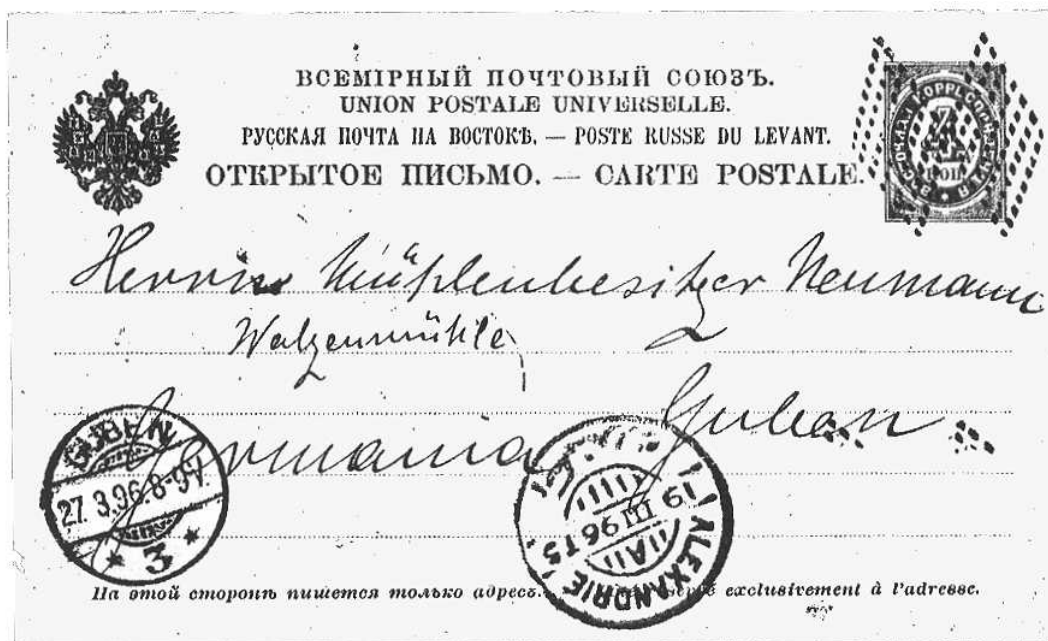 ВСЕМІРНЫЙ ПОЧТОВЫЙ СОЮЗЪ.
UNION POSTALE UNIVERSELLE.
РУССКАЯ ПОЧТА НА ВОСТОКѢ. — POSTE RUSSE DU LEVANT.
ОТКРЫТОЕ ПИСЬМО. — CARTE POSTALE.
Herrn Mühlenbesitzer Neumann
Walzenmühle
Guben
Germania
GUBEN
27.3.96.8-9V.
* 3 *
19 III 96 T5
ALEXANDRIE
На этой сторонѣ пишется только адресъ. exclusivement à l'adresse.